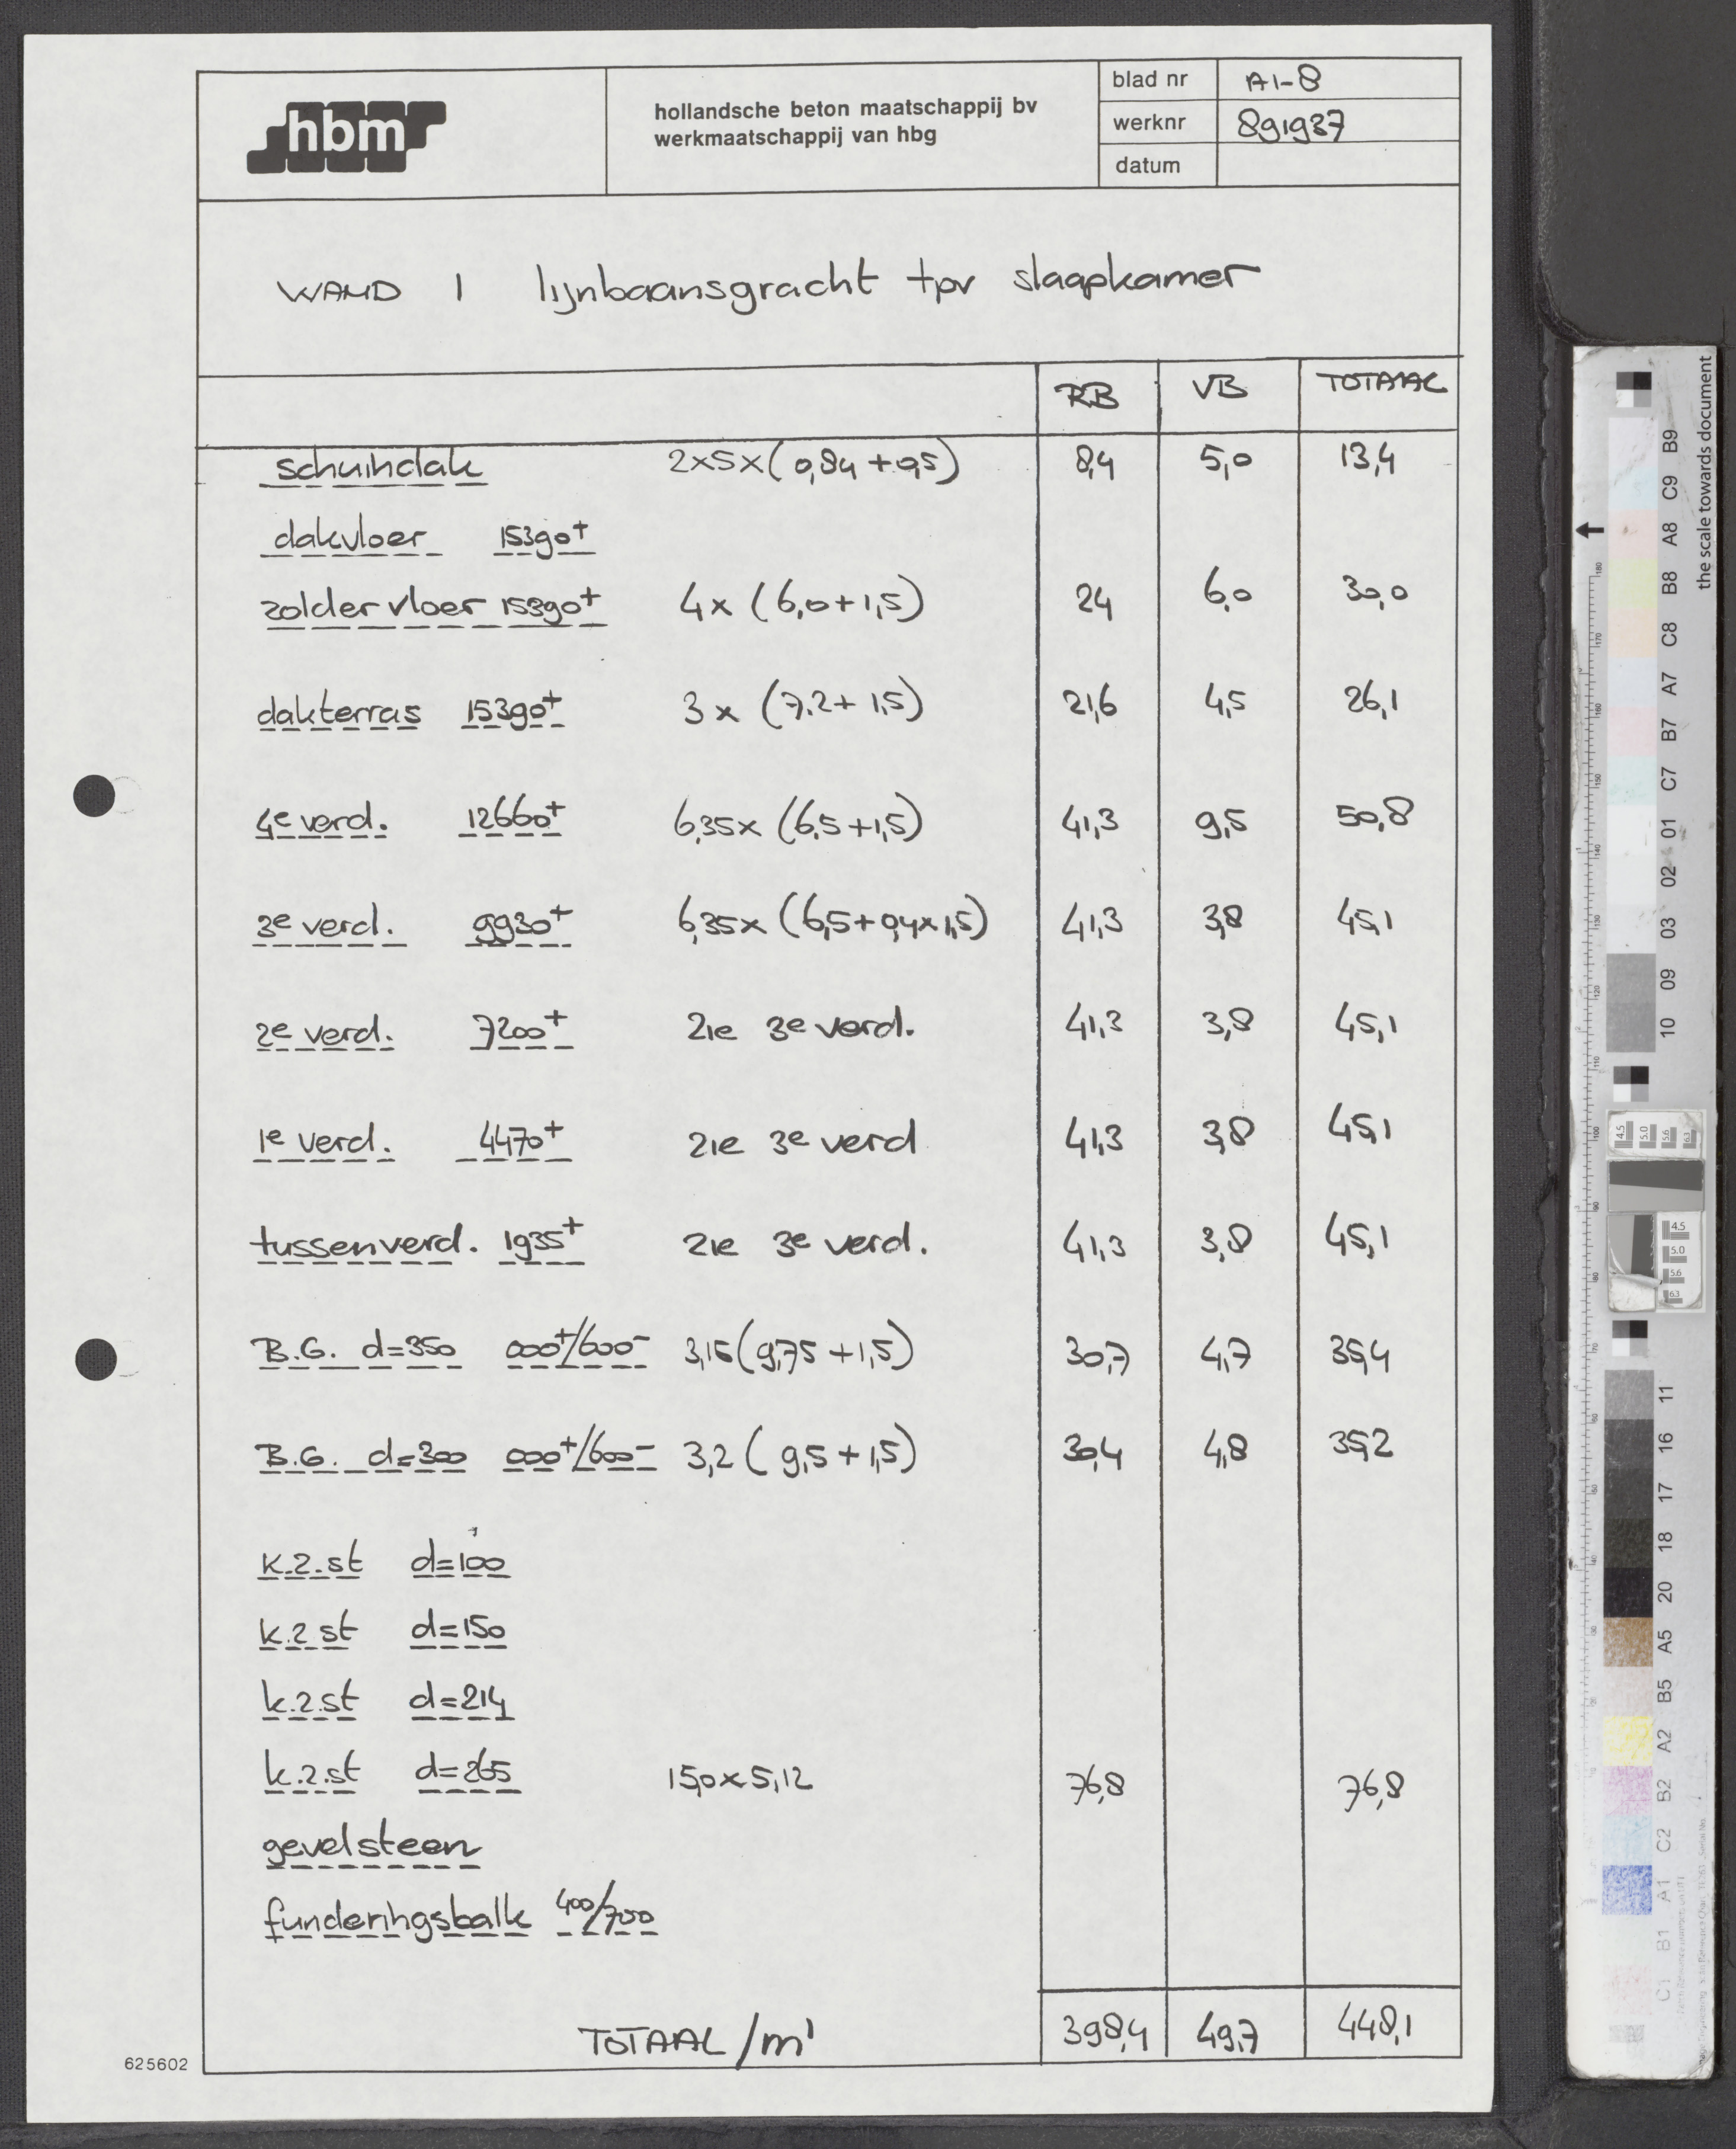 hbm
hollandsche beton maatschappij bv
werkmaatschappij van hbg
blad nr A1-8
werknr 891937
datum
WAND 1 lijnbaansgracht tpv slaapkamer
RB VB TOTAAL
schuindak 2x5x(0,84+0,5) 8,4 5,0 13,4
dakvloer 15390+
zoldervloer 15390+ 4x (6,0+1,5) 24 6,0 30,0
dakterras 15390+ 3x (7.2+1,5) 21,6 4,5 26,1
4e verd. 12660+ 6,35x (6,5+1,5) 41,3 9,5 50,8
3e verd. 9930+ 6,35x (6,5+0,4x1,5) 41,3 3,8 45,1
2e verd. 7200+ zie 3e verd. 41,3 3,8 45,1
1e verd. 4470+ zie 3e verd 41,3 3,8 45,1
tussenverd. 1935+ zie 3e verd. 41,3 3,8 45,1
B.G. d=350 000+/600- 3,15(9,75+1,5) 30,7 4,7 35,4
B.G. d=300 000+/600- 3,2 (9,5+1,5) 30,4 4,8 35,2
k.z.st d=100
k.z.st d=150
k.z.st d=214
k.z.st d=265 15,0x5,12 76,8 76,8
gevelsteen
funderingsbalk 400/700
TOTAAL /m¹ 398,4 49,7 448,1
625602
the scale towards document
B9
C9
A8
B8
C8
A7
B7
C7
01
02
03
09
10
11
16
17
18
20
A5
B5
A2
B2
C2
A1
B1
C1